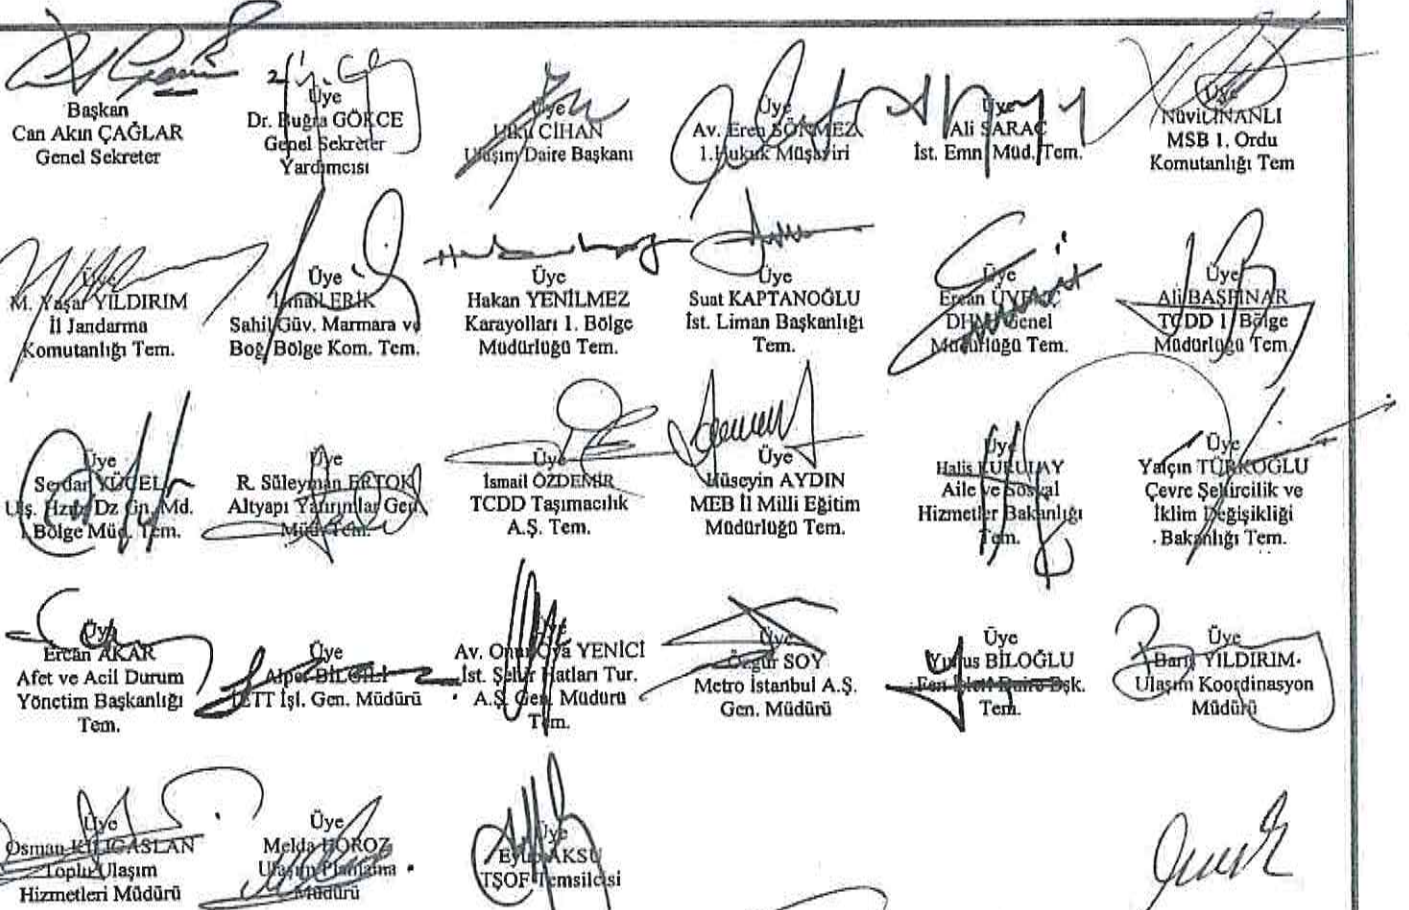 Başkan
Can Akın ÇAĞLAR
Genel Sekreter
Üye
Dr. Buğra GÖKCE
Genel Sekreter
Yardımcısı
Üye
Utku CİHAN
Ulaşım Daire Başkanı
Üye
Av. Eren SÖNMEZ
1.Hukuk Müşaviri
Üye
Ali SARAÇ
İst. Emn. Müd. Tem.
Üye
Nüvit İNANLI
MSB 1. Ordu
Komutanlığı Tem
Üye
M. Yaşar YILDIRIM
İl Jandarma
Komutanlığı Tem.
Üye
İsmail ERİK
Sahil Güv. Marmara ve
Boğ Bölge Kom. Tem.
Üye
Hakan YENİLMEZ
Karayolları 1. Bölge
Müdürlüğü Tem.
Üye
Suat KAPTANOĞLU
İst. Liman Başkanlığı
Tem.
Üye
Ercan
DHMİ Genel
Müdürlüğü Tem.
Üye
Ali BAŞPINAR
TCDD 1. Bölge
Müdürlüğü Tem.
Üye
Serdar YÜCEL
Ulş. Hzm. Dz Gn. Md.
Bölge Müd. Tem.
Üye
R. Süleyman ERTOK
Altyapı Yatırımlar Gen
Müd. Tem.
Üye
İsmail ÖZDEMİR
TCDD Taşımacılık
A.Ş. Tem.
Üye
Hüseyin AYDIN
MEB İl Milli Eğitim
Müdürlüğü Tem.
Üye
Halis
Aile ve Sosyal
Hizmetler Bakanlığı
Tem.
Üye
Yalçın TÜRKOĞLU
Çevre Şehircilik ve
İklim Değişikliği
Bakanlığı Tem.
Üye
Ercan AKAR
Afet ve Acil Durum
Yönetim Başkanlığı
Tem.
Üye
Alper BİLGİLİ
İETT İşl. Gen. Müdürü
Üye
Av. Onur Oya YENİCİ
İst. Şehir Hatları Tur.
A.Ş. Gen. Müdürü
Tem.
Üye
Özgür SOY
Metro İstanbul A.Ş.
Gen. Müdürü
Üye
Yunus BİLOĞLU
Fen İşleri Daire Bşk.
Tem.
Üye
Barış YILDIRIM
Ulaşım Koordinasyon
Müdürü
Üye
Osman KILIÇASLAN
Toplu Ulaşım
Hizmetleri Müdürü
Üye
Melda HOROZ
Ulaşım Planlama
Müdürü
Üye
Eyüp AKSU
TŞOF Temsilcisi